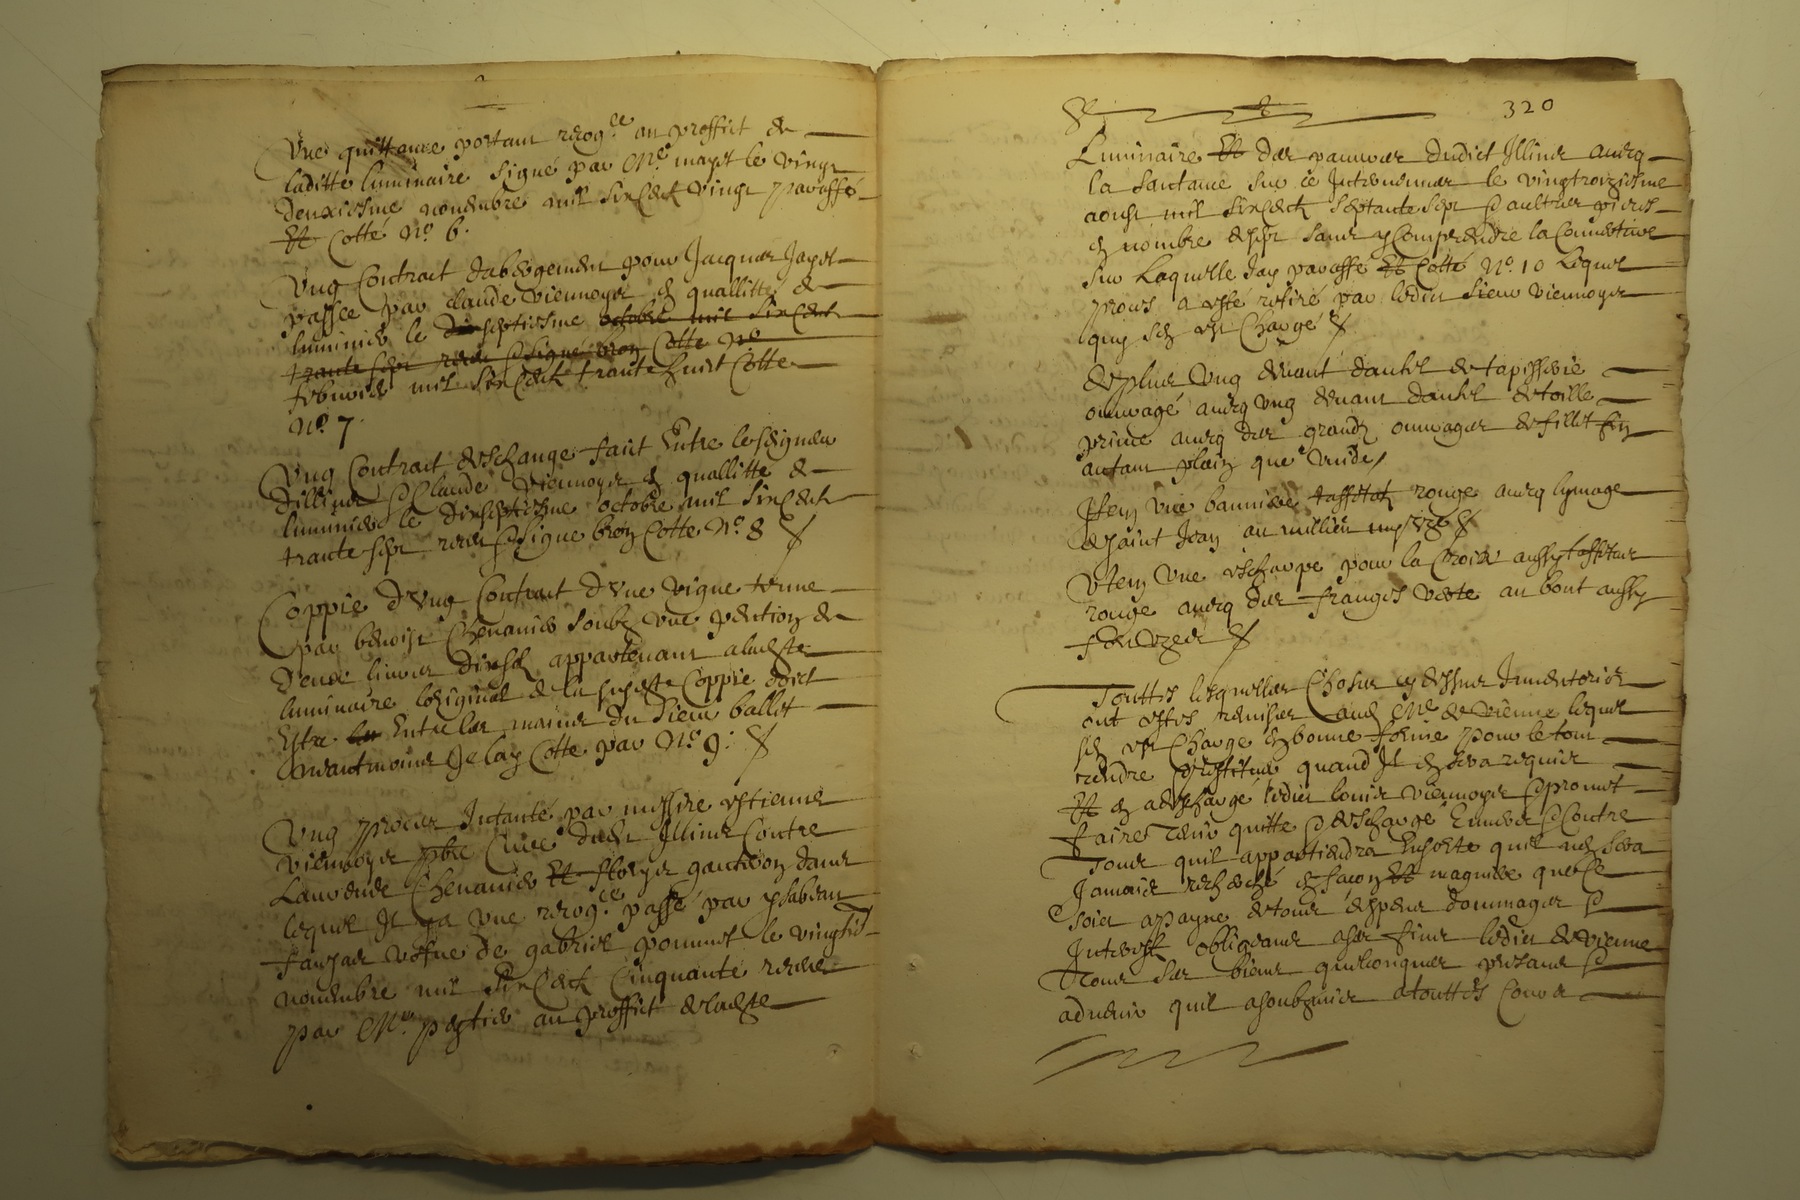 Une quittance portant recog.ce au proffict de
laditte luminaire signé par Me mayet le vingt
deuxiesme novembre mil six cent vingt paraffé
Et Cotté No 6.
Ung Contrait dabergement pour Jacques Jayet
passée par claude viennoys en quallitté de
luminier le dixseptiesme octobre mil six cent
trante sept receu signé Cotte No
febvrier mil six cent trante huict Cotte
No 7
Ung Contrait deschange faict Entre le seigneur
dillins Claude viennoys en quallitté de
luminier le dixseptiesme octobre mil six cent
trante sept receu signe broz Cotte No 8
Coppie d'ung Contract d'une vigne tenue
par benoist Chenavier soubz une pention de
deux livres appartenant a ladte
luminaire loriginal de la susdte Coppie doict
Estre Entre les mains du sieur ballet
neantmoins Je lay Cotte par No 9:
Ung proces Intanté par messire estienne
viennoys pbre Curé dudit Illins Contre
Laurence Chenavier Et gautron dans
lequel Il y a une recog.ce passé par ysabeau
vefue de gabriel pommet le vingt
novembre mil six cent Cinquante receue
par Me au proffict de ladte
320
Luminaire Et des pauvres dudict Illins avecq
la santance sur ce Intervenues le vingtroiziesme
aoust mil six cent septante sept aultres pieces
en nombre de sept sans y Comprendre la Couverture
sur Laquelle Jay paraffé Et Cotté No 10 Lequel
proces a esté retiré par ledit sieur viennoys
quy sen est Chargé
de plus Ung devant dautel de tapisserie
ouvragé avecq ung devant dautel de toille
prince avecq des grands ouvrages de fillet
autant plein que vuide
Item une banniere taffetas rouge avecq lymage
de saint Jean au millieu
Item Une escharpe pour la Croix aussy taffetas
rouge avecq des franges verte au bout aussy
fort uzée
Touttes lesquelles Choses cy dessus Inventoriés
ont estés remises audit Me de vienne lequel
sen est Chargé en bonne forme pour le tout
rendre restituer quand Il en sera requis
Et en a deschargé ledit louis viennoys promet
faire Tenir quitte deschargé Envers Contre
Tous quil appartiendra Ensorte quil nen sera
Jamais recherché en facon Et maniere que ce
soit a payne de tous despens dommages
Interestz obligeant a ses fins ledit de vienne
Tous ses biens quelconques presans
advenir quil a soubzmis a touttes Cours